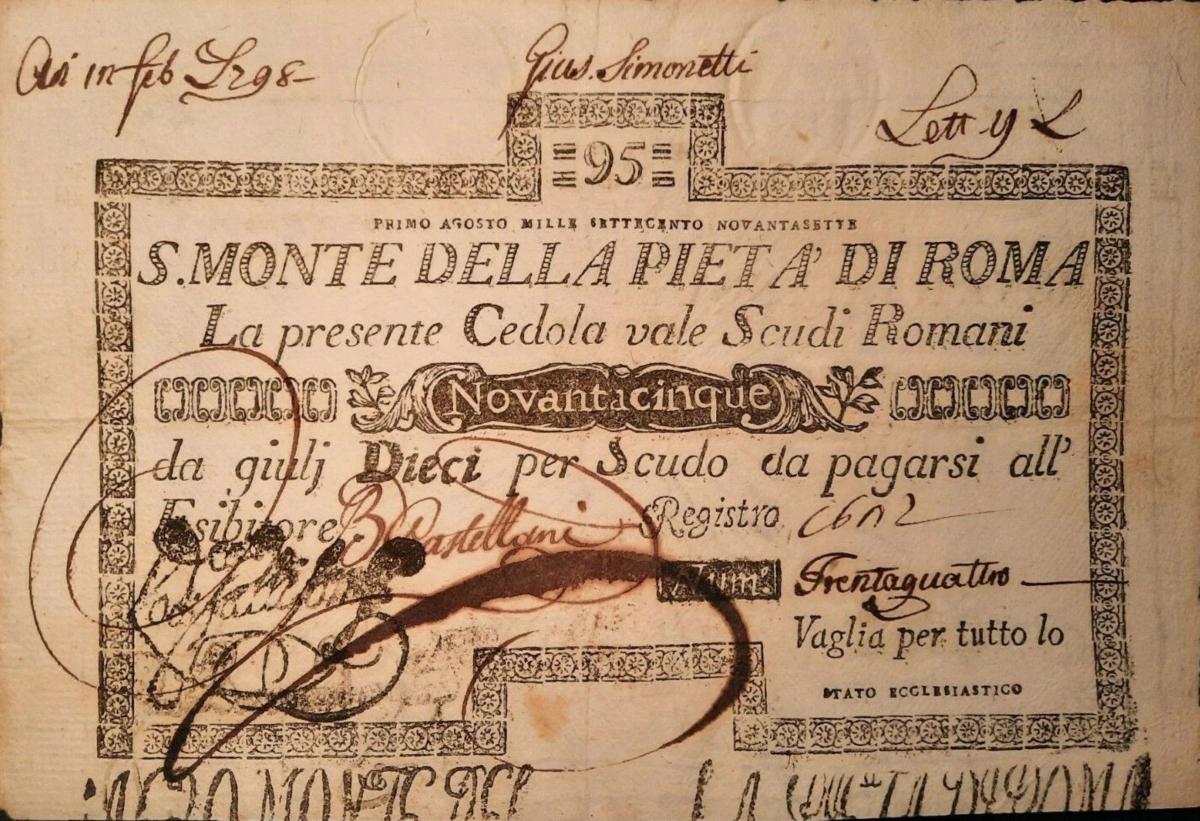 Gius. Simonetti
Lett y L
95
PRIMO AGOSTO MILLE SETTECENTO NOVANTASETTE
S. MONTE DELLA PIETA' DI ROMA
La presente Cedola vale Scudi Romani
Novantacinque
da giulj Dieci per Scudo da pagarsi all'
Esibitore B Castellani Registro
Num. Trentaquattro
Vaglia per tutto lo
STATO ECCLESIASTICO